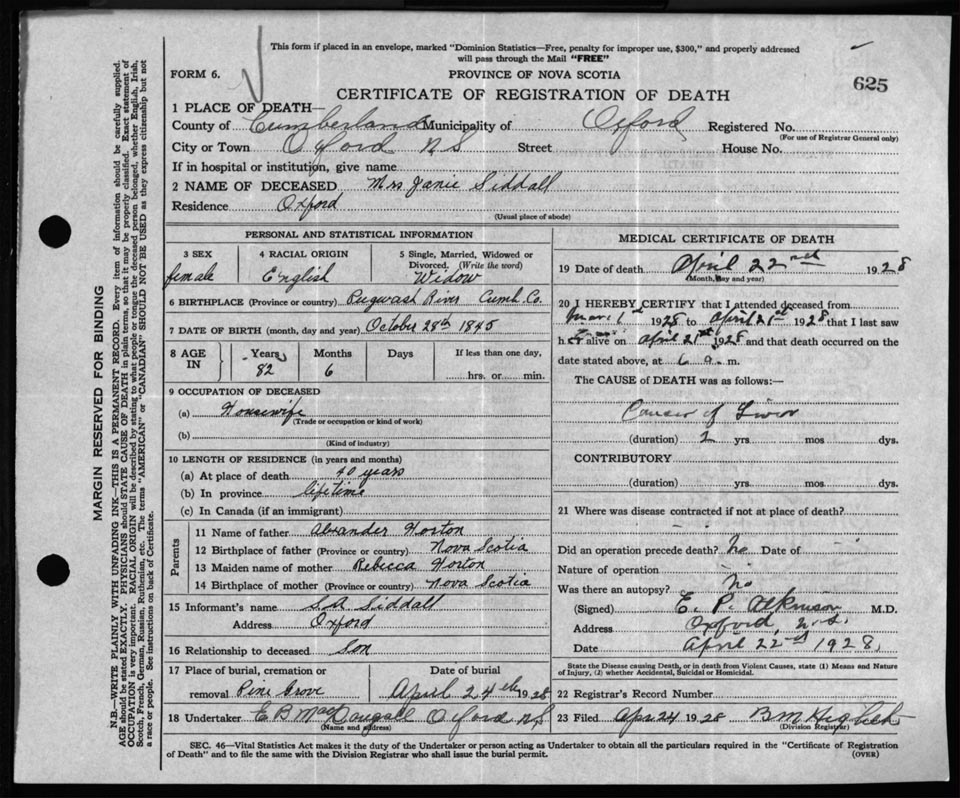 This form if placed in an envelope, marked "Dominion Statistics—Free, penalty for improper use, $300," and properly addressed
will pass through the Mail "FREE"
FORM 6.
PROVINCE OF NOVA SCOTIA
625
CERTIFICATE OF REGISTRATION OF DEATH
1 PLACE OF DEATH—
County of Cumberland Municipality of Oxford Registered No.
(For use of Registrar General only)
City or Town Oxford N S Street House No.
If in hospital or institution, give name
2 NAME OF DECEASED Mrs Janie Siddall
Residence Oxford
(Usual place of abode)
PERSONAL AND STATISTICAL INFORMATION
3 SEX
female
4 RACIAL ORIGIN
English
5 Single, Married, Widowed or
Divorced. (Write the word)
Widow
6 BIRTHPLACE (Province or country) Pugwash River Cumb. Co.
7 DATE OF BIRTH (month, day and year) October 28th 1845
8 AGE IN
Years Months Days If less than one day,
82 6 hrs. or min.
9 OCCUPATION OF DECEASED
(a) Housewife
(Trade or occupation or kind of work)
(b)
(Kind of industry)
10 LENGTH OF RESIDENCE (in years and months)
(a) At place of death 40 years
(b) In province lifetime
(c) In Canada (if an immigrant)
Parents
11 Name of father Alexander Horton
12 Birthplace of father (Province or country) Nova Scotia
13 Maiden name of mother Rebecca Horton
14 Birthplace of mother (Province or country) Nova Scotia
15 Informant's name S.A. Siddall
Address Oxford
16 Relationship to deceased Son
17 Place of burial, cremation or Date of burial
removal Pine Grove April 24th 1928
18 Undertaker E B MacDougall Oxford N.S
(Name and address)
MEDICAL CERTIFICATE OF DEATH
19 Date of death April 22nd 1928
(Month, day and year)
20 I HEREBY CERTIFY that I attended deceased from
Mar 1st 1928 to April 21st 1928 that I last saw
her alive on April 21st 1928 and that death occurred on the
date stated above, at 6 a. m.
The CAUSE of DEATH was as follows:—
Cancer of Liver
(duration) 2 yrs. mos. dys.
CONTRIBUTORY
(duration) yrs. mos. dys.
21 Where was disease contracted if not at place of death?
Did an operation precede death? No Date of
Nature of operation
Was there an autopsy? No
(Signed) E. P. Atkinson M.D.
Address Oxford, N.S.
Date April 22nd 1928.
State the Disease causing Death, or in death from Violent Causes, state (1) Means and Nature
of Injury, (2) whether Accidental, Suicidal or Homicidal.
22 Registrar's Record Number
23 Filed Apr 24 1928 B M
(Division Registrar)
SEC. 46—Vital Statistics Act makes it the duty of the Undertaker or person acting as Undertaker to obtain all the particulars required in the "Certificate of Registration
of Death" and to file the same with the Division Registrar who shall issue the burial permit.
(OVER)
MARGIN RESERVED FOR BINDING
N.B.—WRITE PLAINLY WITH UNFADING INK—THIS IS A PERMANENT RECORD. Every item of information should be carefully supplied.
AGE should be stated EXACTLY. PHYSICIANS should STATE CAUSE OF DEATH in plain terms, so that it may be properly classified. Exact statement of
OCCUPATION is very important. RACIAL ORIGIN will be described by stating to what people or tongue the deceased person belonged, whether English, Irish,
Scotch, French, German, Russian, Ruthenian, etc. The terms "AMERICAN" or "CANADIAN" SHOULD NOT BE USED as they express citizenship but not
a race or people. See instructions on back of Certificate.